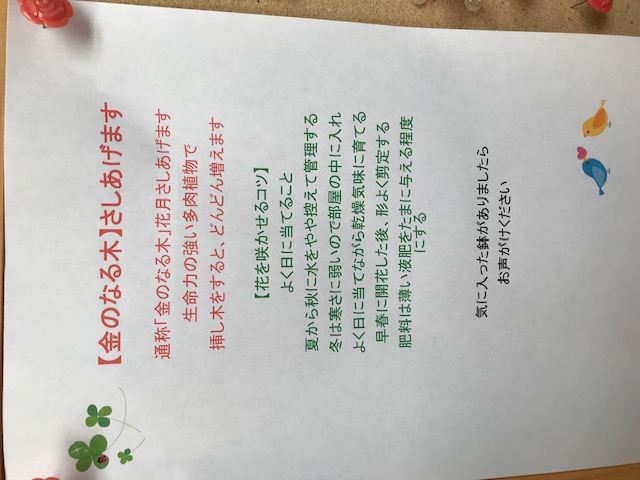 【金のなる木】さしあげます
通称「金のなる木」花月さしあげます
生命力の強い多肉植物で
挿し木をすると、どんどん増えます
【花を咲かせるコツ】
よく日に当てること
夏から秋に水をやや控えて管理する
冬は寒さに弱いので部屋の中に入れ
よく日に当てながら乾燥気味に育てる
早春に開花した後、形よく剪定する
肥料は薄い液肥をたまに与える程度
にする
気に入った鉢がありましたら
お声がけください